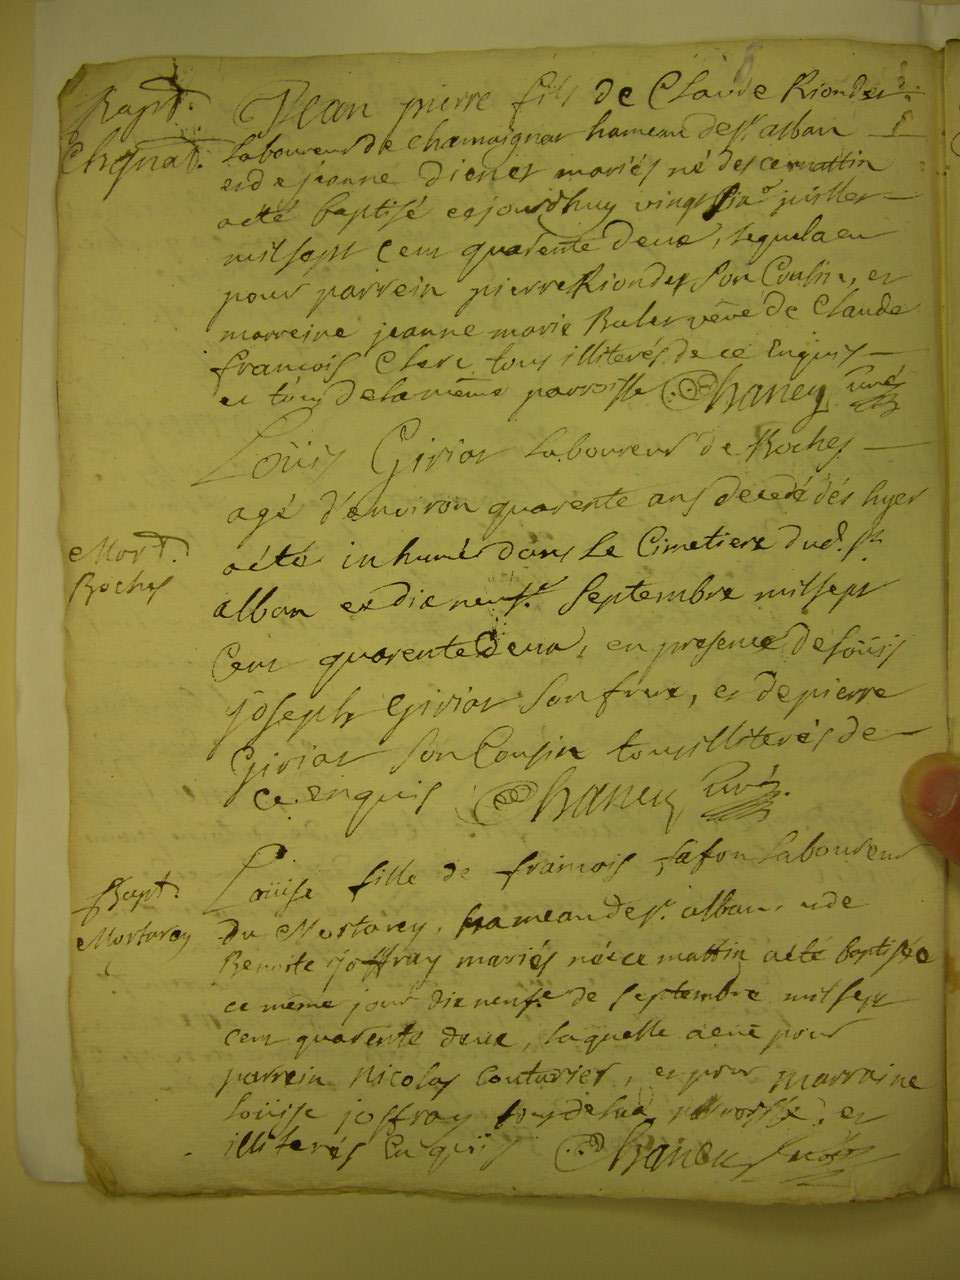 Bapt.
Chgnat.
Jean pierre fils de Claude Riondet
laboureur de chamaignar hameau de st alban
et de jeanne dienet mariés né des ce mattin
a été baptisé cejourdhuy vingt juillet
mil sept cent quarente deux, lequel a eu
pour parrein pierre Riondet son Cousin, et
marreine jeanne marie Bulet veüe de Claude
francois Clerc tous illiterés de ce Enquis
et tous de la même parroisse Chaney curé
Mort.
Roches
Loüis Giriat laboureur de Roches
agé d'environ quarente ans decedé dés hyer
a été inhumé dans le Cimetiere dud. st
alban ce dix neuf.e septembre mil sept
Cent quarente deux, en presence de loüis
joseph Giriat son frere, et de pierre
Giriat son Cousin tous illiterés de
ce enquis Chaney curé.
Bapt.
Mortarey
Loüise fille de francois lafon laboureur
du Mortarey, hameau de st. alban, et de
Benoite joffray mariés née ce mattin a été baptisée
ce même jour dix neuf.e de septembre mil sept
cent quarente deux, laquelle a eüe pour
parrein Nicolas Couturier, et pour marraine
loüise joffray tous de lad. parroisse, et
illiterés Enquis Chaney curé